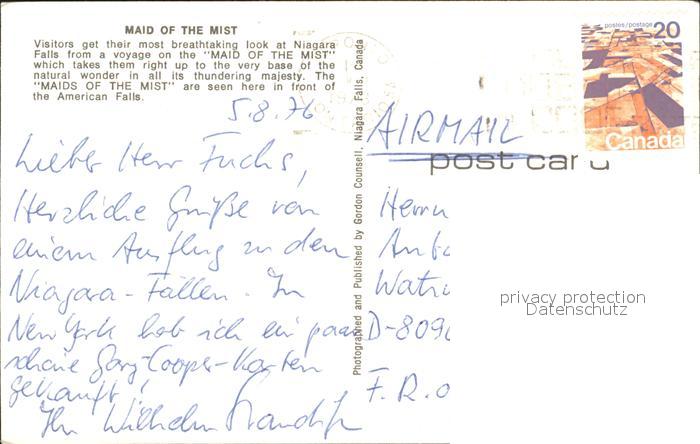 MAID OF THE MIST
Visitors get their most breathtaking look at Niagara
Falls from a voyage on the "MAID OF THE MIST"
which takes them right up to the very base of the
natural wonder in all its thundering majesty. The
"MAIDS OF THE MIST" are seen here in front of
the American Falls.
5.8.76
Lieber Herr Fuchs,
Herzliche Grüße von
einem Ausflug zu den
Niagara-Fällen. In
New York hab ich ein paar
schöne Gary-Cooper-Karten
gekauft!
Ihr Wilhelm
Photographed and Published by Gordon Counsell, Niagara Falls, Canada
postes/postage 20
Canada
AIRMAIL
post card
Herrn
D-809
F.R.O
privacy protection
Datenschutz